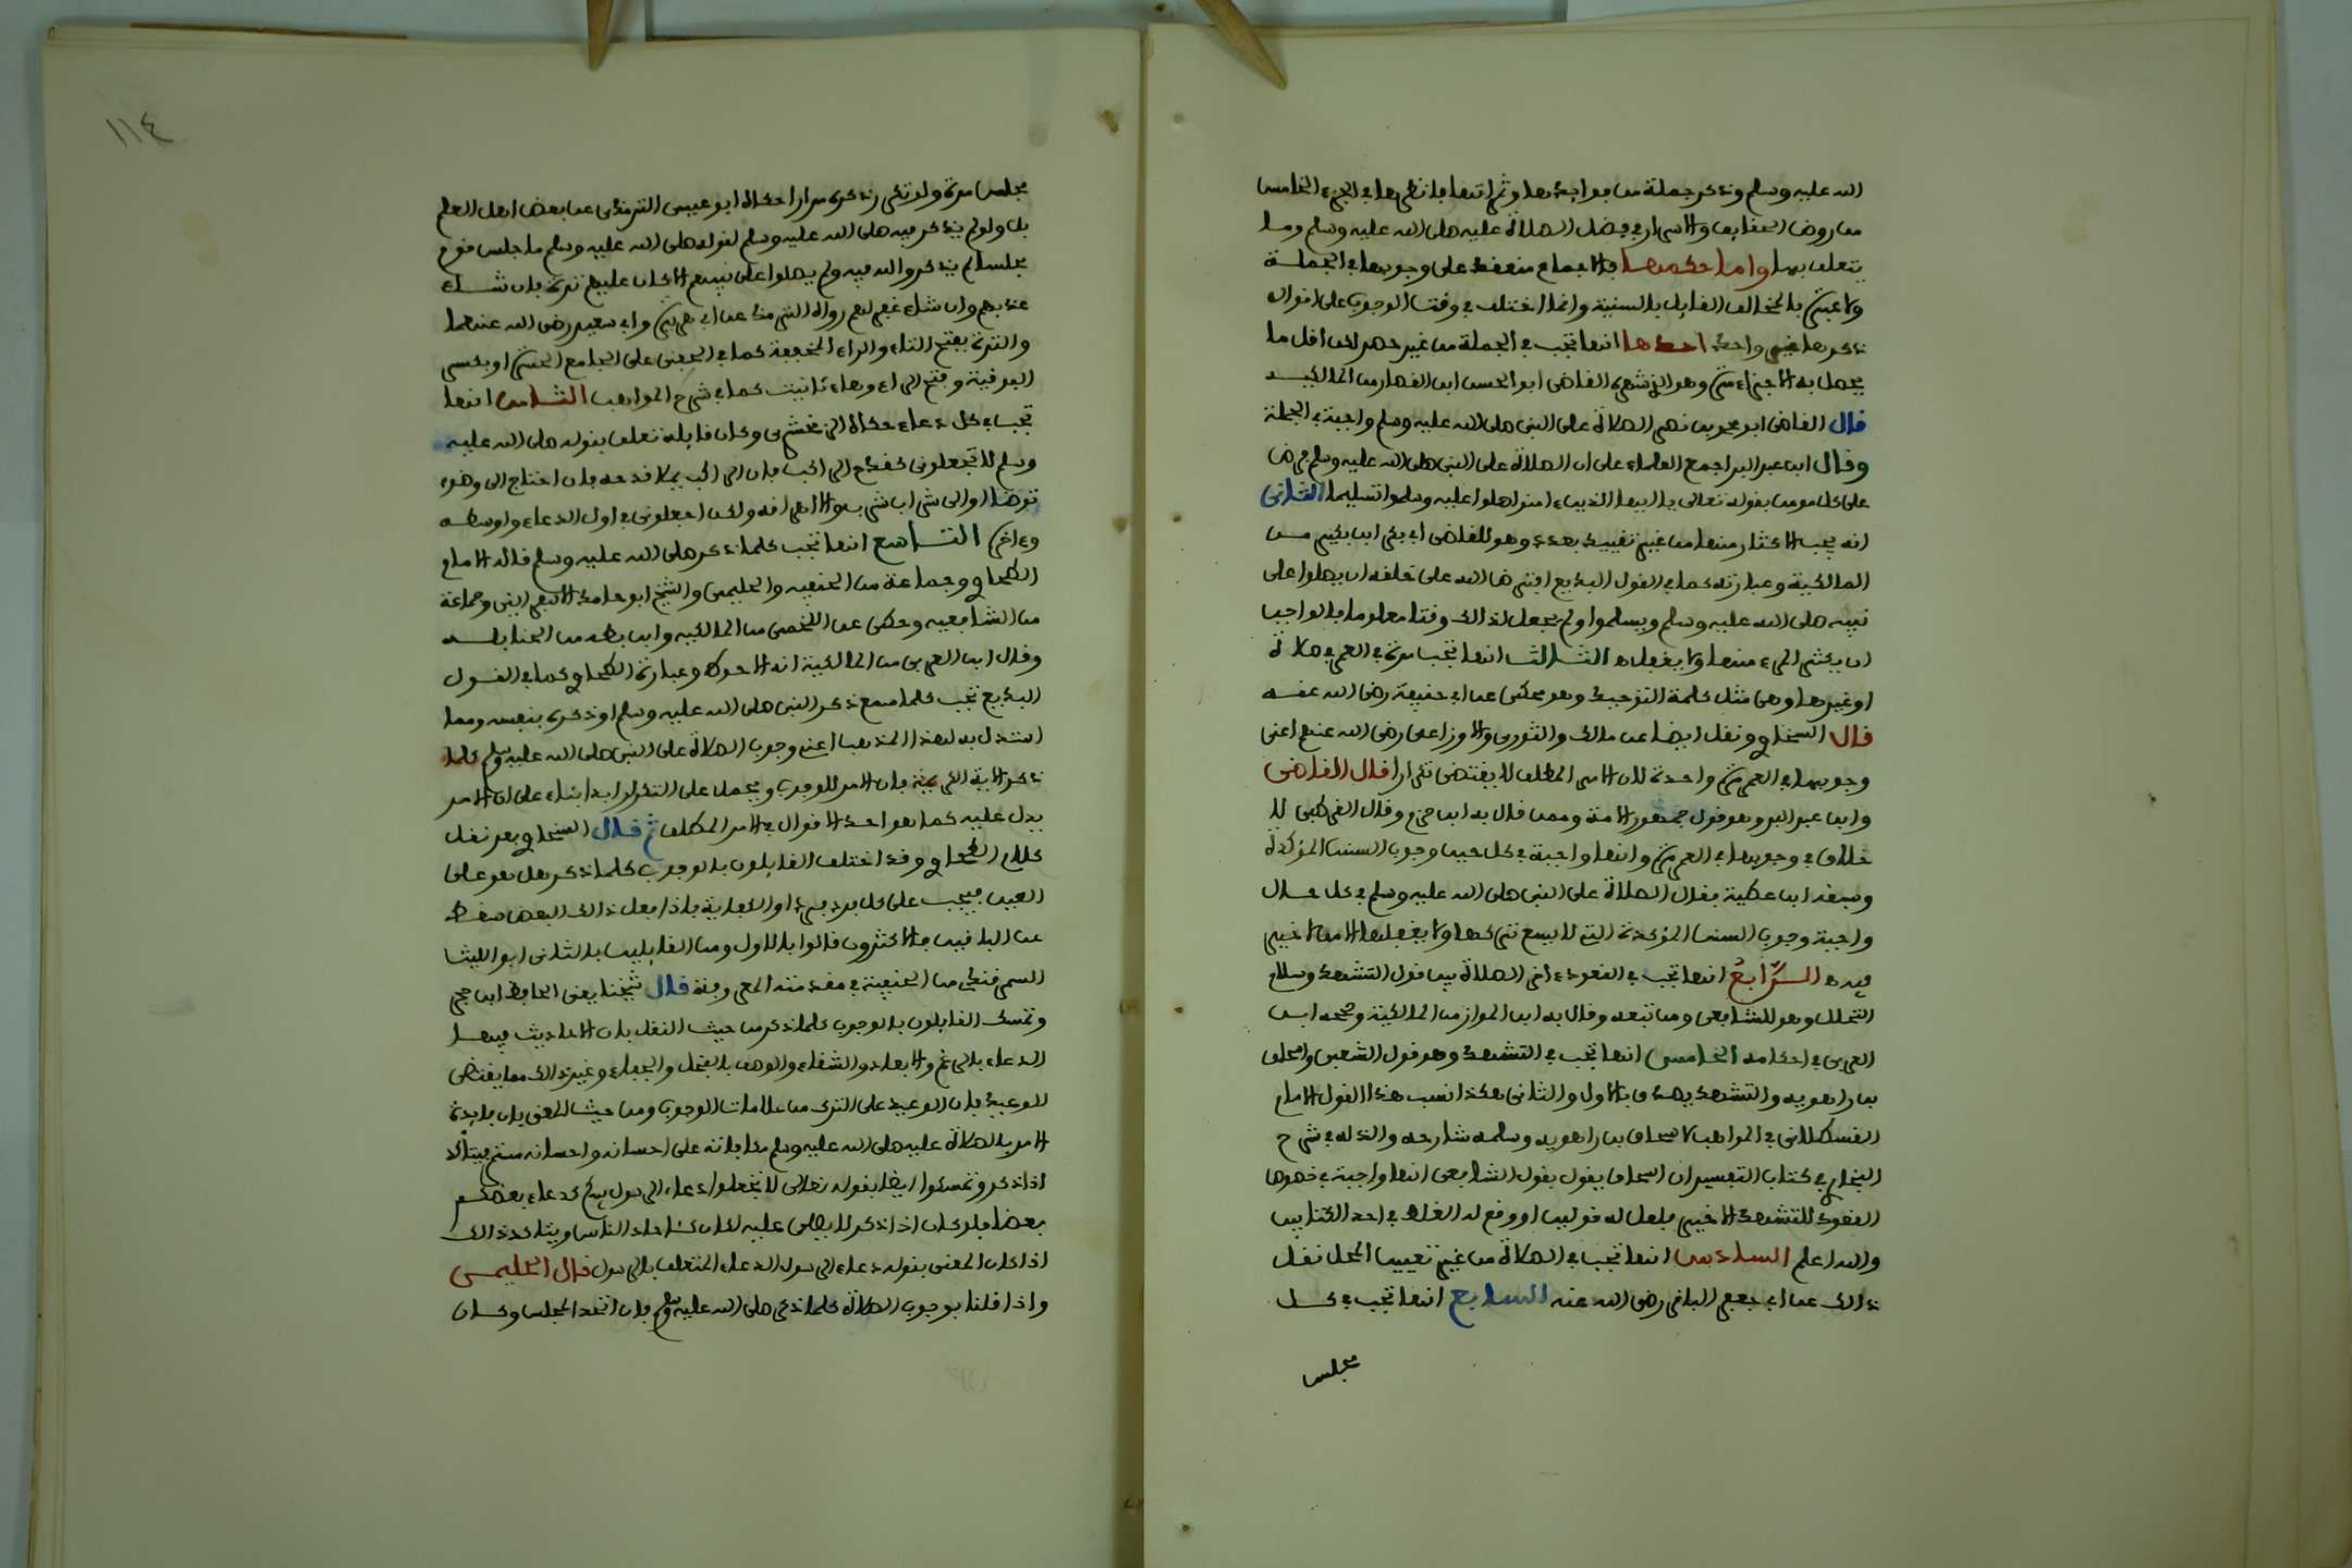 الله عليه وسلم ونذكر جملة من فوائدها وثمراتها فانظرها في الجزء الخامس
من روض الحقايق والاسرار في فضل الصلاة عليه صلى الله عليه وسلم وما
يتعلق بها واما حكمها فالاجماع منعقد على وجوبها في الجملة
ولا عبرة بالمخالف القايل بالسنية وانما اختلف في وقت الوجوب على اقوال
ذكرها غير واحد احدها انها تجب في الجملة من غير حصر لكن اقل ما
يحصل به الاجزاء مرة وهو الذي شهره القاضي ابو الحسن ابن القصار من المالكيه
قال القاضي ابو محمد بن نصر الصلاة على النبي صلى الله عليه وسلم واجبة في الجملة
وقال ابن عبد البر اجمع العلماء على ان الصلاة على النبي صلى الله عليه وسلم فرض
على كل مومن بقوله تعالى يا ايها الذين ءامنوا صلوا عليه وسلموا تسليما الثاني
انه يجب الاكثار منها من غير تقييد بعدد وهو للقاضي ابي بكر ابن بكير من
المالكية وعبارته كما في القول البديع افترض الله على خلقه ان يصلوا على
نبيه صلى الله عليه وسلم ويسلموا ولم يجعل لذالك وقتا معلوما فالواجب
ان يكثر المرء منها ولا يغفل ه الثالث انها تجب مرة في العمر في صلاة
او غيرها وهي مثل كلمة التوحيد وهو محكى عن ابي حنيفة رضي الله عنه
قال السخاوي ونقل ايضا عن مالك والثوري والاوزاعي رضي الله عنهم اعني
وجوبها في العمر مرة واحدة لان الامر المطلق لا يقتضي تكرارا قال القاضي
وابن عبد البر وهو قول جمهور الامة وممن قال به ابن حزم وقال القرطبي لا
خلاف في وجوبها في العمر مرة وانها واجبة في كل حين وجوب السنن المؤكدة
وسبقه ابن عطية فقال الصلاة على النبي صلى الله عليه وسلم في كل حال
واجبة وجوب السنن المؤكدة التي لا يسع تركها ولا يغفلها الا من لا خير
فيه ه الرابع انها تجب في القعود ءاخر الصلاة بين قول التشهد وسلام
التحلل وهو للشافعي ومن تبعه وقال به ابن المواز من المالكية وصححه ابن
العربي في احكامه الخامس انها تجب في التشهد وهو قول الشعبي واسحاق
بن راهويه والتشهد يصدق بالاول والثاني هكذا نسب هذا القول الامام
القسطلاني في المواهب لاسحاق بن راهويه وسلمه شارحه والذي له في شرح
البخاري في كتاب التفسير ان اسحاق يقول بقول الشافعي انها واجبة في خصوص
القعود للتشهد الاخير فلعل له قولين او وقع له الغلط في احد الكتابين
والله اعلم السادس انها تجب في الصلاة من غير تعيين المحل نقل
ذالك عن ابي جعفر الباقر رضي الله عنه السابع انها تجب في كل
مجلس
١١٤
مجلس مرة ولو تكرر ذكره مرارا حكاه ابو عيسى الترمذي عن بعض اهل العلم
بل ولو لم يذكر فيه صلى الله عليه وسلم لقوله صلى الله عليه وسلم ما جلس قوم
مجلسا لم يذكروا الله فيه ولم يصلوا على نبيهم الا كان عليهم ترة فان شاء
عذبهم وان شاء غفر لهم رواه الترمذي عن ابي هريرة وابي سعيد رضي الله عنهما
والترة بفتح التاء والراء المخففة كما في الحفني على الجامع الصغير او بكسر
الفوقية وفتح الراء وهاء تانيث كما في شرح المواهب الثامن انها
تجب في كل دعاء حكاه الزمخشري وكان قايله تعلق بقوله صلى الله عليه
وسلم لا تجعلوني كقدح الراكب فان الراكب يملا قدحه فان احتاج الى وضوء
توضا او الى شراب شرب والا اهراقه ولكن اجعلوني في اول الدعاء واوسطه
وءاخره التاسع انها تجب كلما ذكر صلى الله عليه وسلم قاله الامام
الطحاوي وجماعة من الحنفيه والحليمي والشيخ ابو حامد الاسفرايني وجماعة
من الشافعيه وحكي عن اللخمي من المالكيه وابن بطه من الحنابله
وقال ابن العربي من المالكية انه الاحوط وعبارة الطحاوي كما في القول
البديع تجب كلما سمع ذكر النبي صلى الله عليه وسلم او ذكره بنفسه ومما
استدل به لهذا المذهب اعني وجوب الصلاة على النبي صلى الله عليه وسلم كلما
ذكر الاية الكريمة فان الامر للوجوب ويحمل على التكرار ابدا بناء على ان الامر
يدل عليه كما هو احد الاقوال في الامر المطلق ثم قال السخاوي بعد نقل
كلام الطحاوي وقد اختلف القايلون بالوجوب كلما ذكر هل هو على
العين فيجب على كل فرد فرد او الكفاية فاذا فعل ذالك البعض سقط
عن الباقين فالاكثرون قالوا بالاول ومن القايلين بالثاني ابو الليث
السمرقندي من الحنفية في مقدمته المعروفة قال شيخنا يعني الحافظ ابن حجر
وتمسك القايلون بالوجوب كلما ذكر من حيث النقل بان الاحاديث فيها
الدعاء بالرغم والابعاد والشقاء والوصف بالبخل والجفاء وغير ذالك مما يقتضي
الوعيد فان الوعيد على الترك من علامات الوجوب ومن حيث المعنى بان فايدة
الامر بالصلاة عليه صلى الله عليه وسلم مكافاته على احسانه واحسانه مستمر فيتأكد
اذا ذكر وتمسكوا ايضا بقوله تعالى لا تجعلوا دعاء الرسول بينكم كدعاء بعضكم
بعضا فلو كان اذا ذكر لا يصلى عليه لكان كاحاد الناس ويتاكد ذالك
اذا كان المعنى بقوله دعاء الرسول الدعاء المتعلق بالرسول قال الحليمي
واذا قلنا بوجوب الصلاة كلما ذكر صلى الله عليه وسلم فان اتحد المجلس وكان